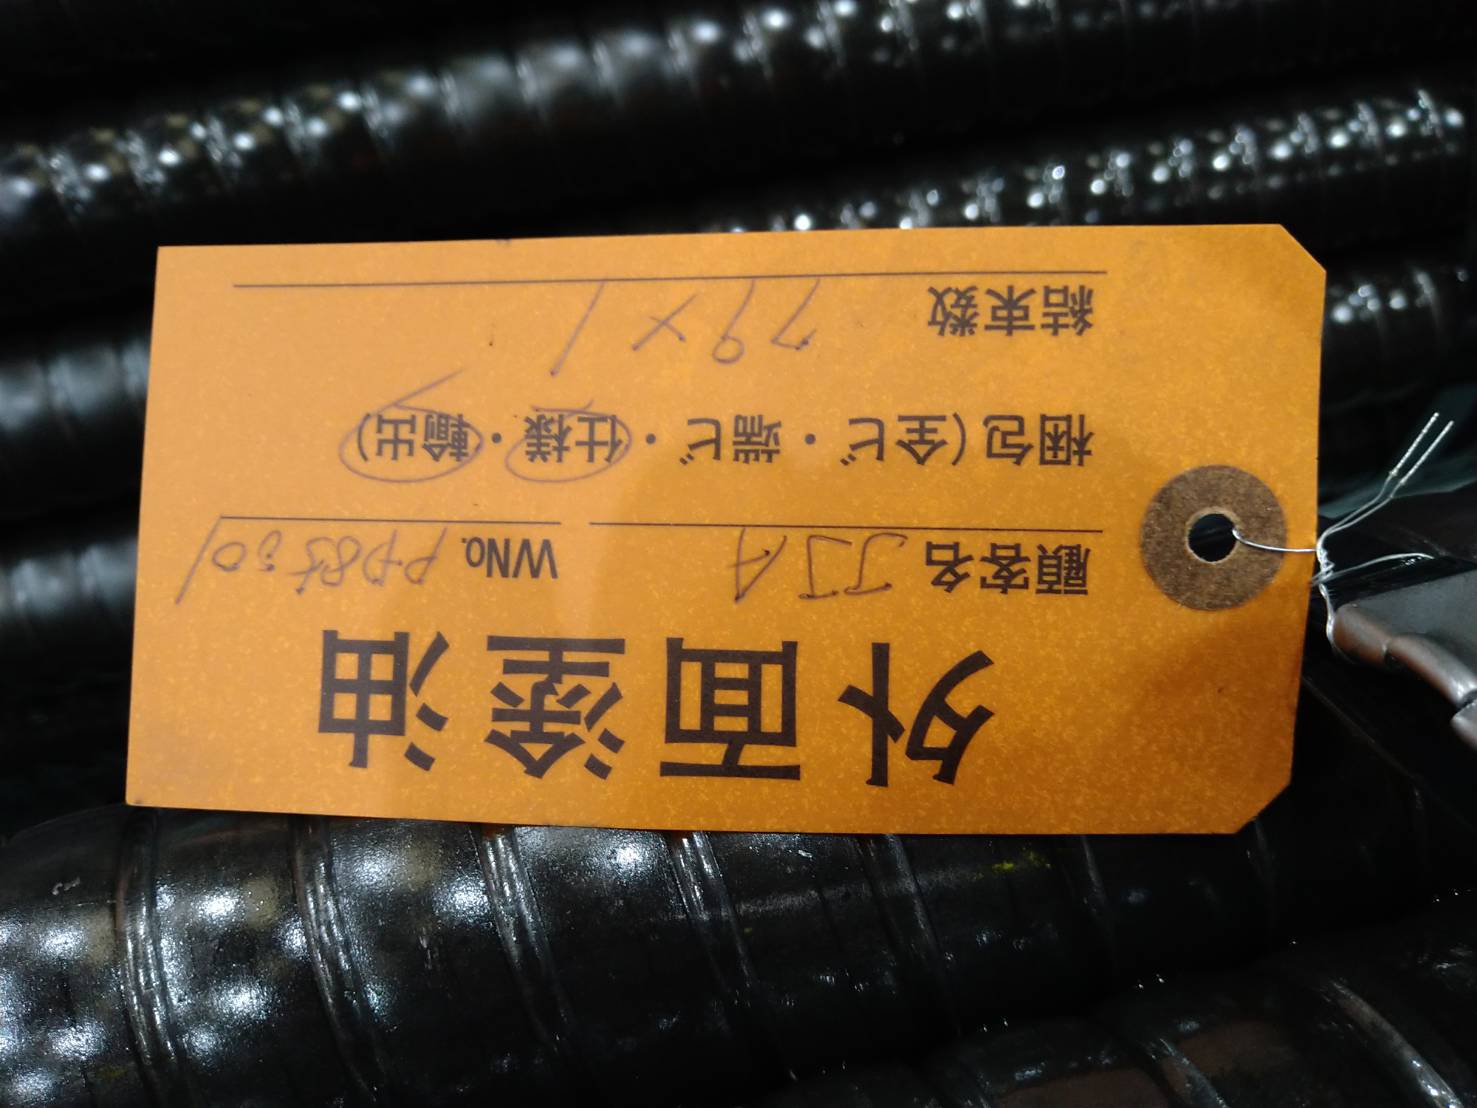 外面塗油
顧客名 JJA WNo. PP85501
梱包(全ビ・端ビ・仕様・輸出)
結束数 79×1